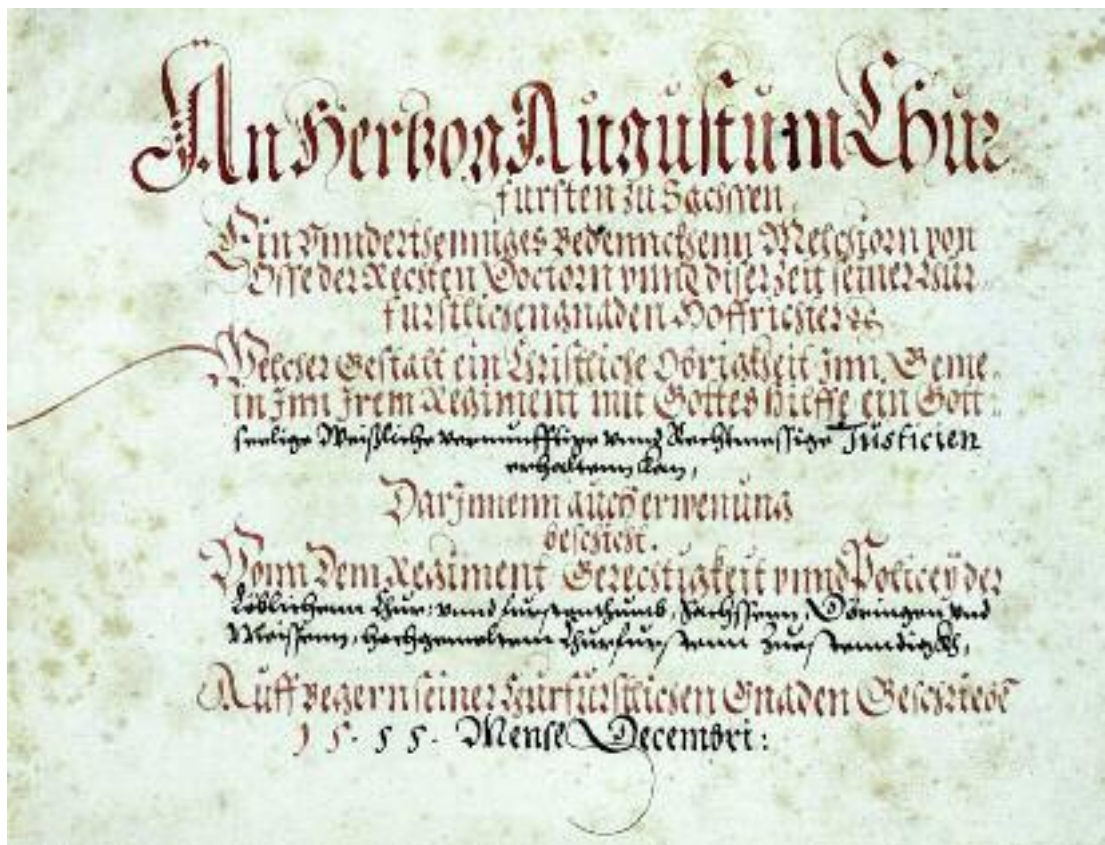 An Hertzog Augustum Chur
fursten zu Sachssen,
Ein Vnnderthenniges Bedennckhenn Melchiorn von
Osse der Rechten Doctorn vnnd diser Zeit seiner Chur
furstlichen gnaden Hoffrichter
Welcher Gestalt ein Christliche Obrigkheit Inn Geme,
in Inn Irem Regiment mit Gottes hieffe ein Gott:
seelige Weißliche vernunfftige vnnd Rechtmessige Justicien
erhaltenn kan,
Darjnnenn auch erwenung
beschicht.
Vonn Dem Regiment Gerechtigkeit vnnd Policey der
Löblichenn Chur: vnnd furstenthumb, Sachssenn, Döringen vnd
Meissenn, Hochgemeltem Churfurstenn Zuestenndig
Auff begern seiner Churfurstlichen Gnaden Geschriebē
1 5. 5 5. Mense Decembri: